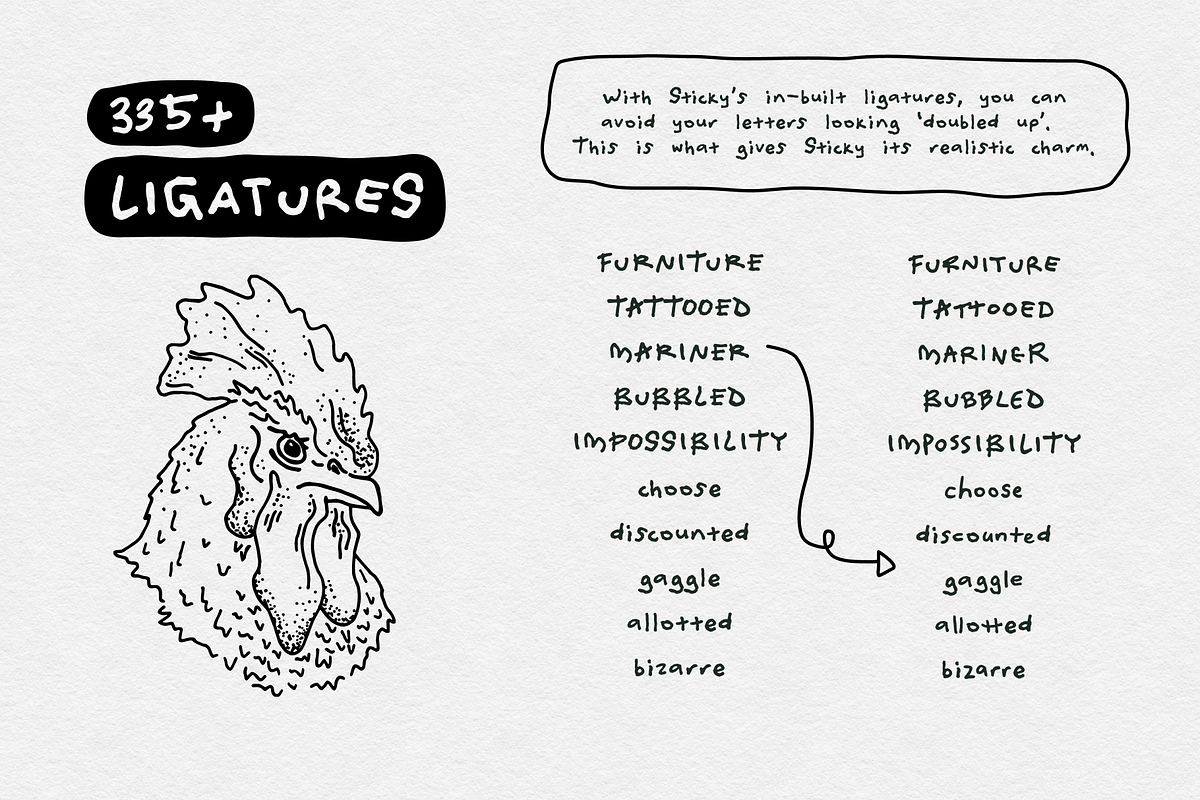 335+
LIGATURES
With Sticky's in-built ligatures, you can
avoid your letters looking 'doubled up'.
This is what gives Sticky its realistic charm.
FURNITURE
TATTOOED
MARINER
BUBBLED
IMPOSSIBILITY
choose
discounted
gaggle
allotted
bizarre
FURNITURE
TATTOOED
MARINER
BUBBLED
IMPOSSIBILITY
choose
discounted
gaggle
allotted
bizarre